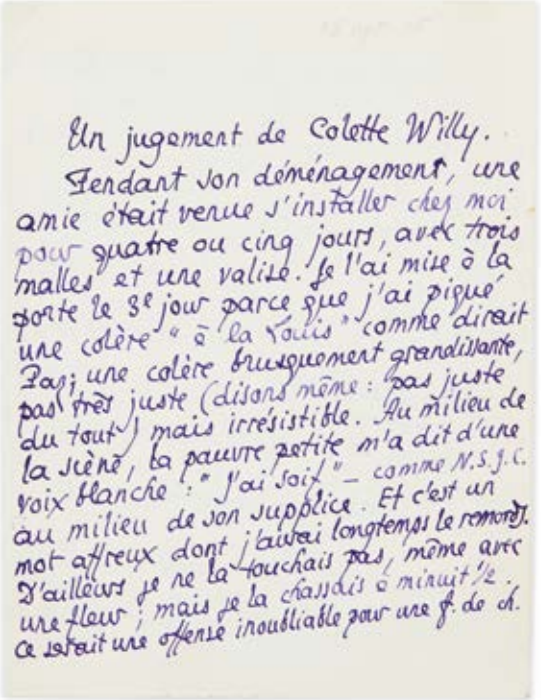 Un jugement de Colette Willy.
Pendant son déménagement, une
amie était venue s'installer chez moi
pour quatre ou cinq jours, avec trois
malles et une valise. Je l'ai mise à la
porte le 3e jour parce que j'ai piqué
une colère "à la Louis" comme dirait
une colère brusquement grandissante,
pas très juste (disons même : pas juste
du tout) mais irrésistible. Au milieu de
la scène, la pauvre petite m'a dit d'une
voix blanche : "J'ai soif" – comme N.S.J.C.
au milieu de son supplice. Et c'est un
mot affreux dont j'aurai longtemps le remords.
D'ailleurs je ne la touchais pas, même avec
une fleur ; mais je la chassais à minuit 1/2.
Ce serait une offense inoubliable pour une f. de ch.